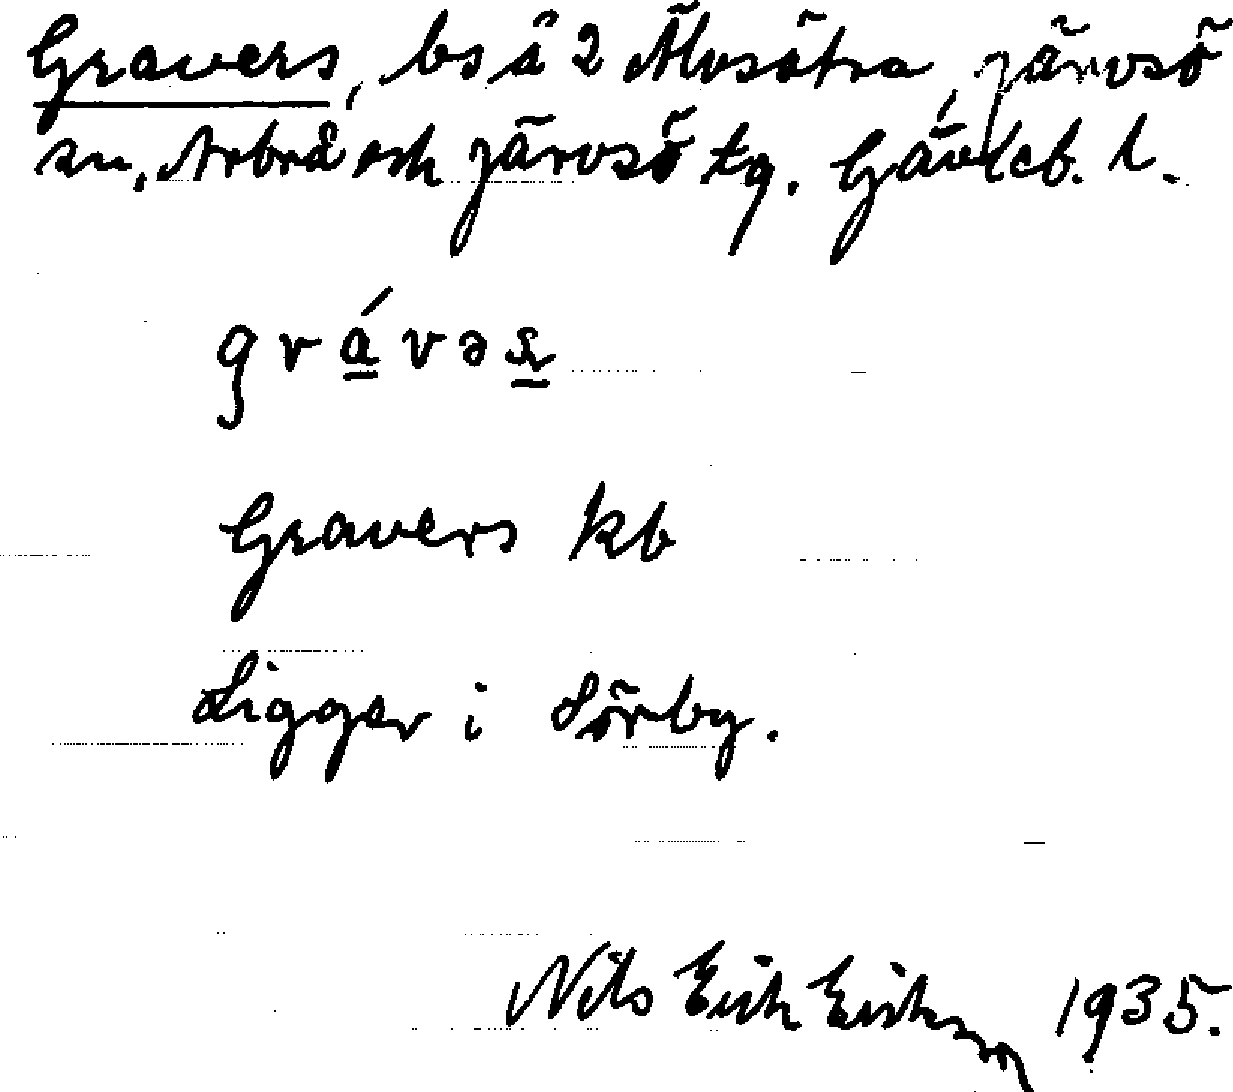 Gravers, bs å 2 Älvsätra, Järvsö
sn, Arbrå och Järvsö tg. Gävleb. l.
grávəs̲
Gravers kb
Ligger i Sörby.
Nils Erik Eriksson 1935.